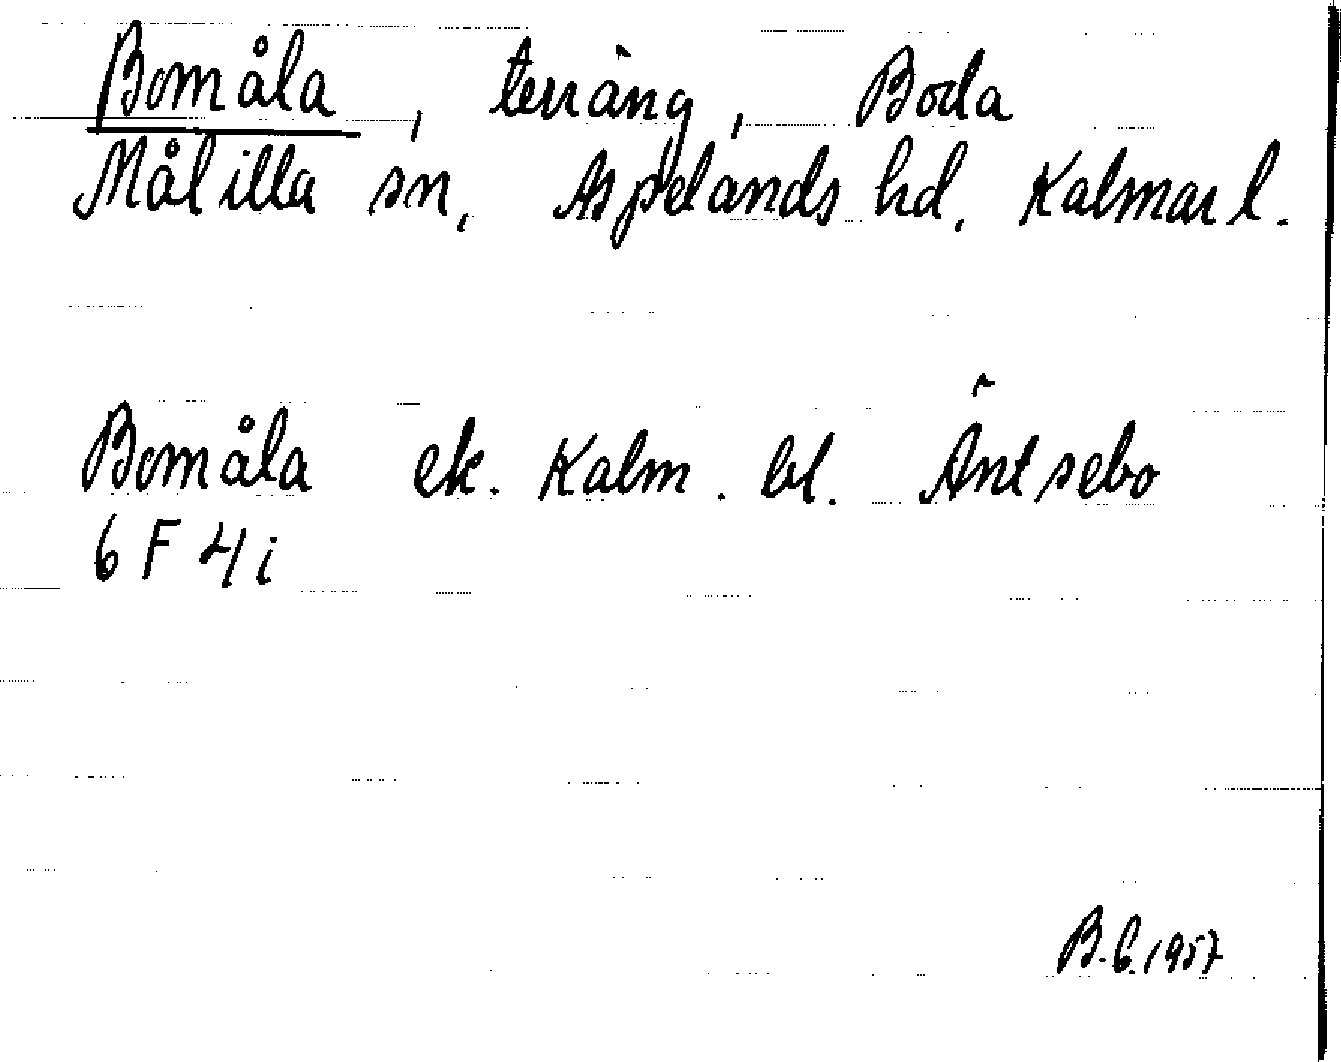 Bomåla, terräng, Boda
Målilla sn, Aspelands hd, Kalmar l.
Bomåla ek. Kalm. bl. Äntsebo
6 F 4 i
B.G. 1957